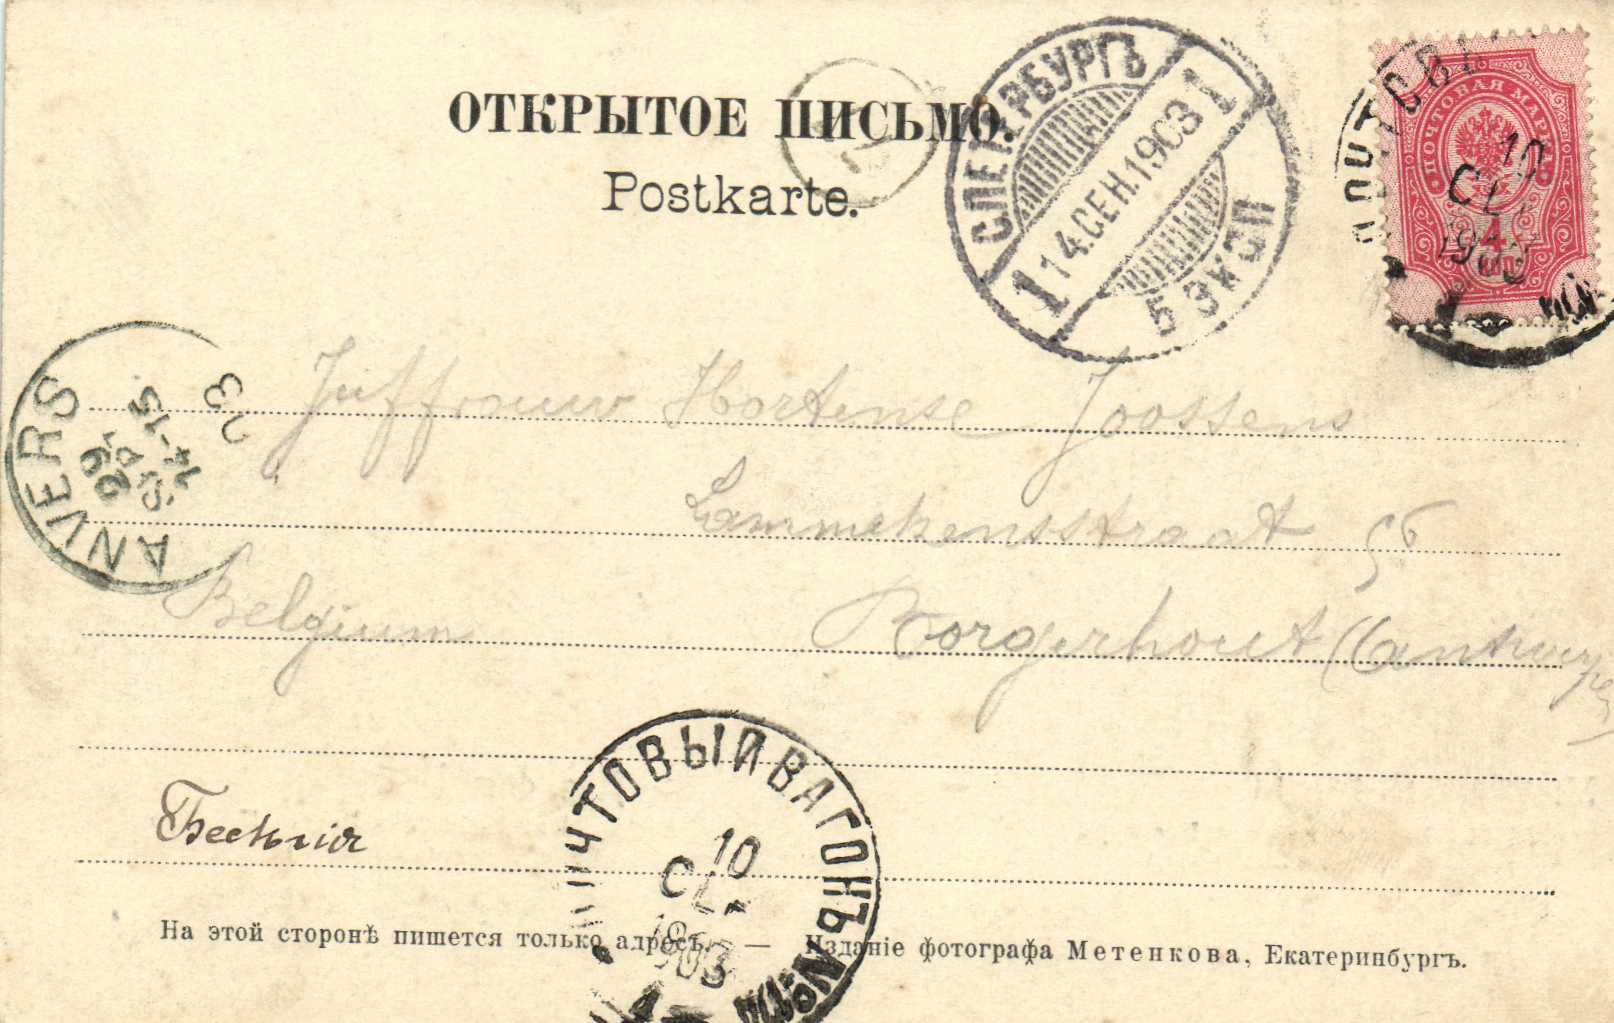 ОТКРЫТОЕ ПИСЬМО.
Postkarte.
С.ПЕТЕРБУРГЪ
1 14.СЕН.1903 1
5 ЭКСП
ПОЧТОВАЯ МАРКА
4
ПОЧТОВЫ
10
1903
ANVERS
29
14-15
03
Juffrouw Hortense Joossens
Lammekensstraat 56
Belgium Borgerhout (Antwerpen)
ПОЧТОВЫЙ ВАГОНЪ
10
1903
Бельгія
На этой сторонѣ пишется только адресъ. — Изданіе фотографа Метенкова, Екатеринбургъ.